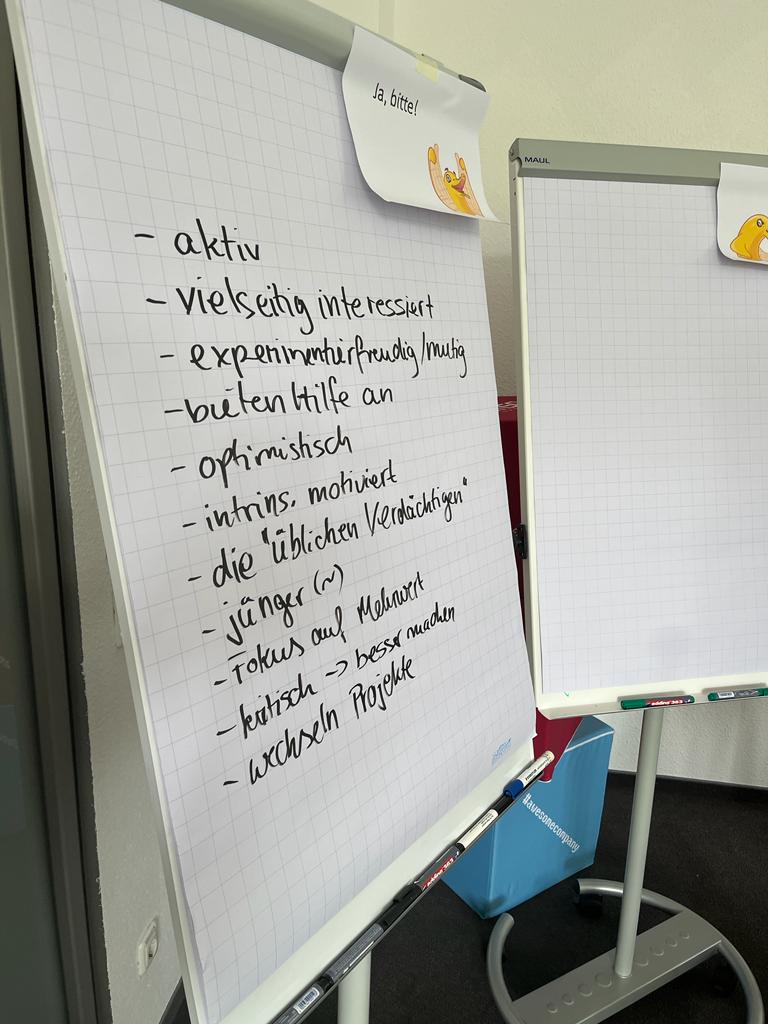 Ja, bitte!
- aktiv
- vielseitig interessiert
- experimentierfreudig/mutig
- bieten Hilfe an
- optimistisch
- intrins. motiviert
- die "üblichen Verdächtigen"
- jünger (~)
- Fokus auf Mehrwert
- kritisch -> besser machen
- wechseln Projekte
MAUL
#awesomecompany